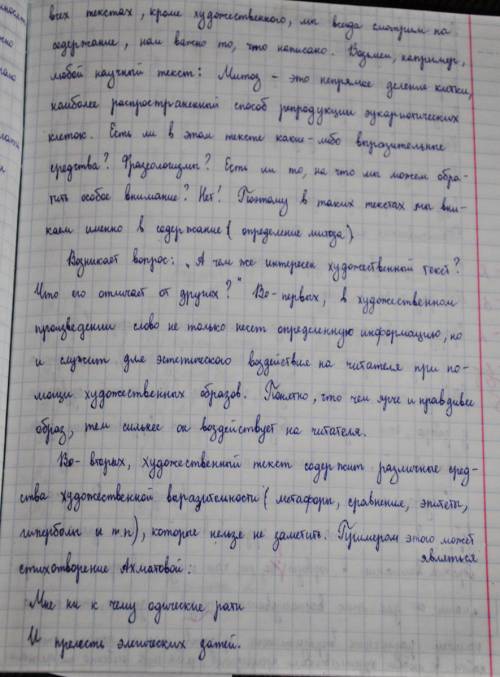 всех текстах, кроме художественного, мы всегда смотрим на
содержание, нам важно то, что написано. Возьмем, например,
любой научный текст: Митоз - это непрямое деление клетки,
наиболее распространенный способ репродукции эукариотических
клеток. Есть ли в этом тексте какие-либо выразительные
средства? Фразеологизмы? Есть ли то, на что мы можем обра-
тить особое внимание? Нет! Поэтому в таких текстах мы вни-
каем именно в содержание (определение митоза).
Возникает вопрос: „А чем же интересен художественный текст?
Что его отличает от других?" Во-первых, в художественном
произведении слово не только несет определенную информацию, но
и служит для эстетического воздействия на читателя при по-
мощи художественных образов. Понятно, что чем ярче и правдивее
образ, тем сильнее он воздействует на читателя.
Во-вторых, художественный текст содержит различные сред-
ства художественной выразительности (метафоры, сравнение, эпитеты,
гиперболы и т.п), которые нельзя не заметить. Примером этого может
являться
стихотворение Ахматовой:
Мне ни к чему одические рати
И прелесть элегических затей.